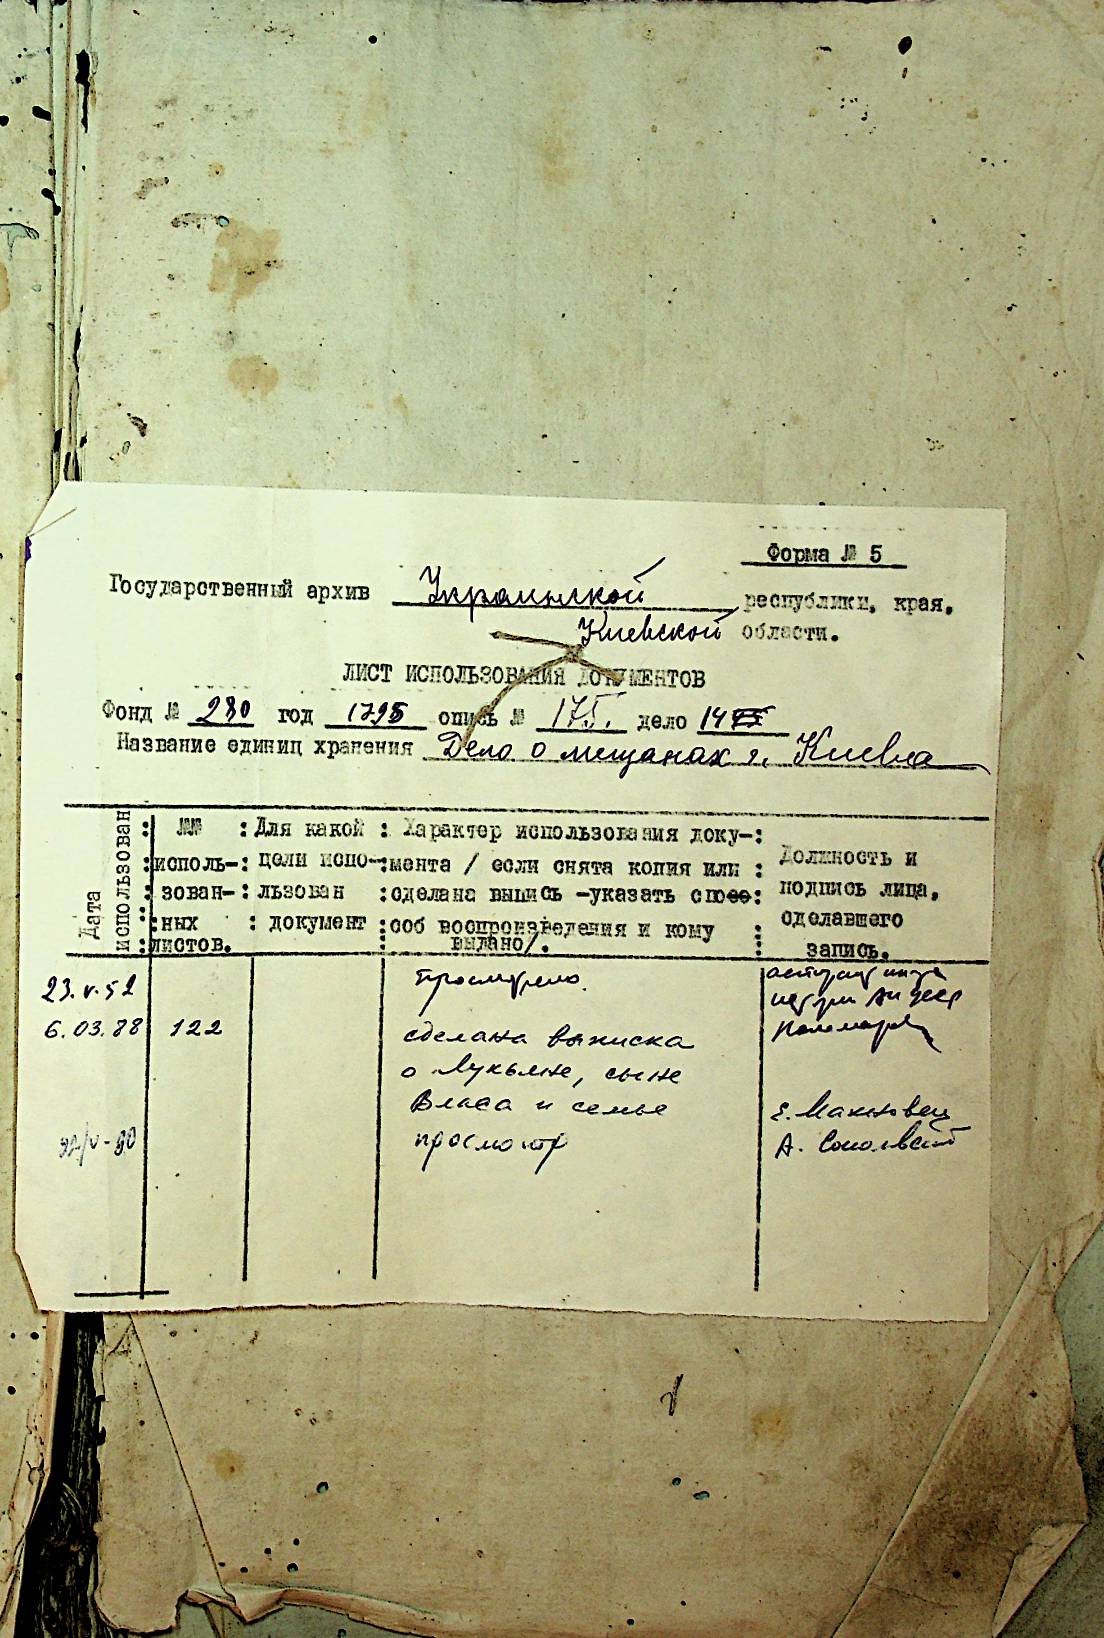 Форма № 5
Государственный архив Украинской республики, края,
Киевской области.
ЛИСТ ИСПОЛЬЗОВАНИЯ ДОКУМЕНТОВ
Фонд № 280 год 1795 опись № 175. дело 14
Название единиц хранения Дело о мещанах г. Киева
Дата использован
№№ исполь-
зован-
ных
листов.
Для какой
цели испо-
льзован
документ
Характер использования доку-
мента / если снята копия или
сделана выпись -указать спосо
соб воспроизведения и кому
выдано/.
Должность и
подпись лица,
сделавшего
запись.
23.v.52 Просмотрено.
6.03.88 122 сделана выписка
о Лукьяне, сыне
Власа и семье Е. Маковец
90 просмотр А.